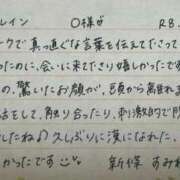 レイン　O様が　R8.
ークで真っ直ぐな言葉を伝えて下さって
ったのに、会いに来てださり嬉しかったです
の、驚いたお顔が、頭から離れ
話をして、触り合ったり、刺激的で
したね♪久しぶりに深になれた
かったです 新保 すみれ